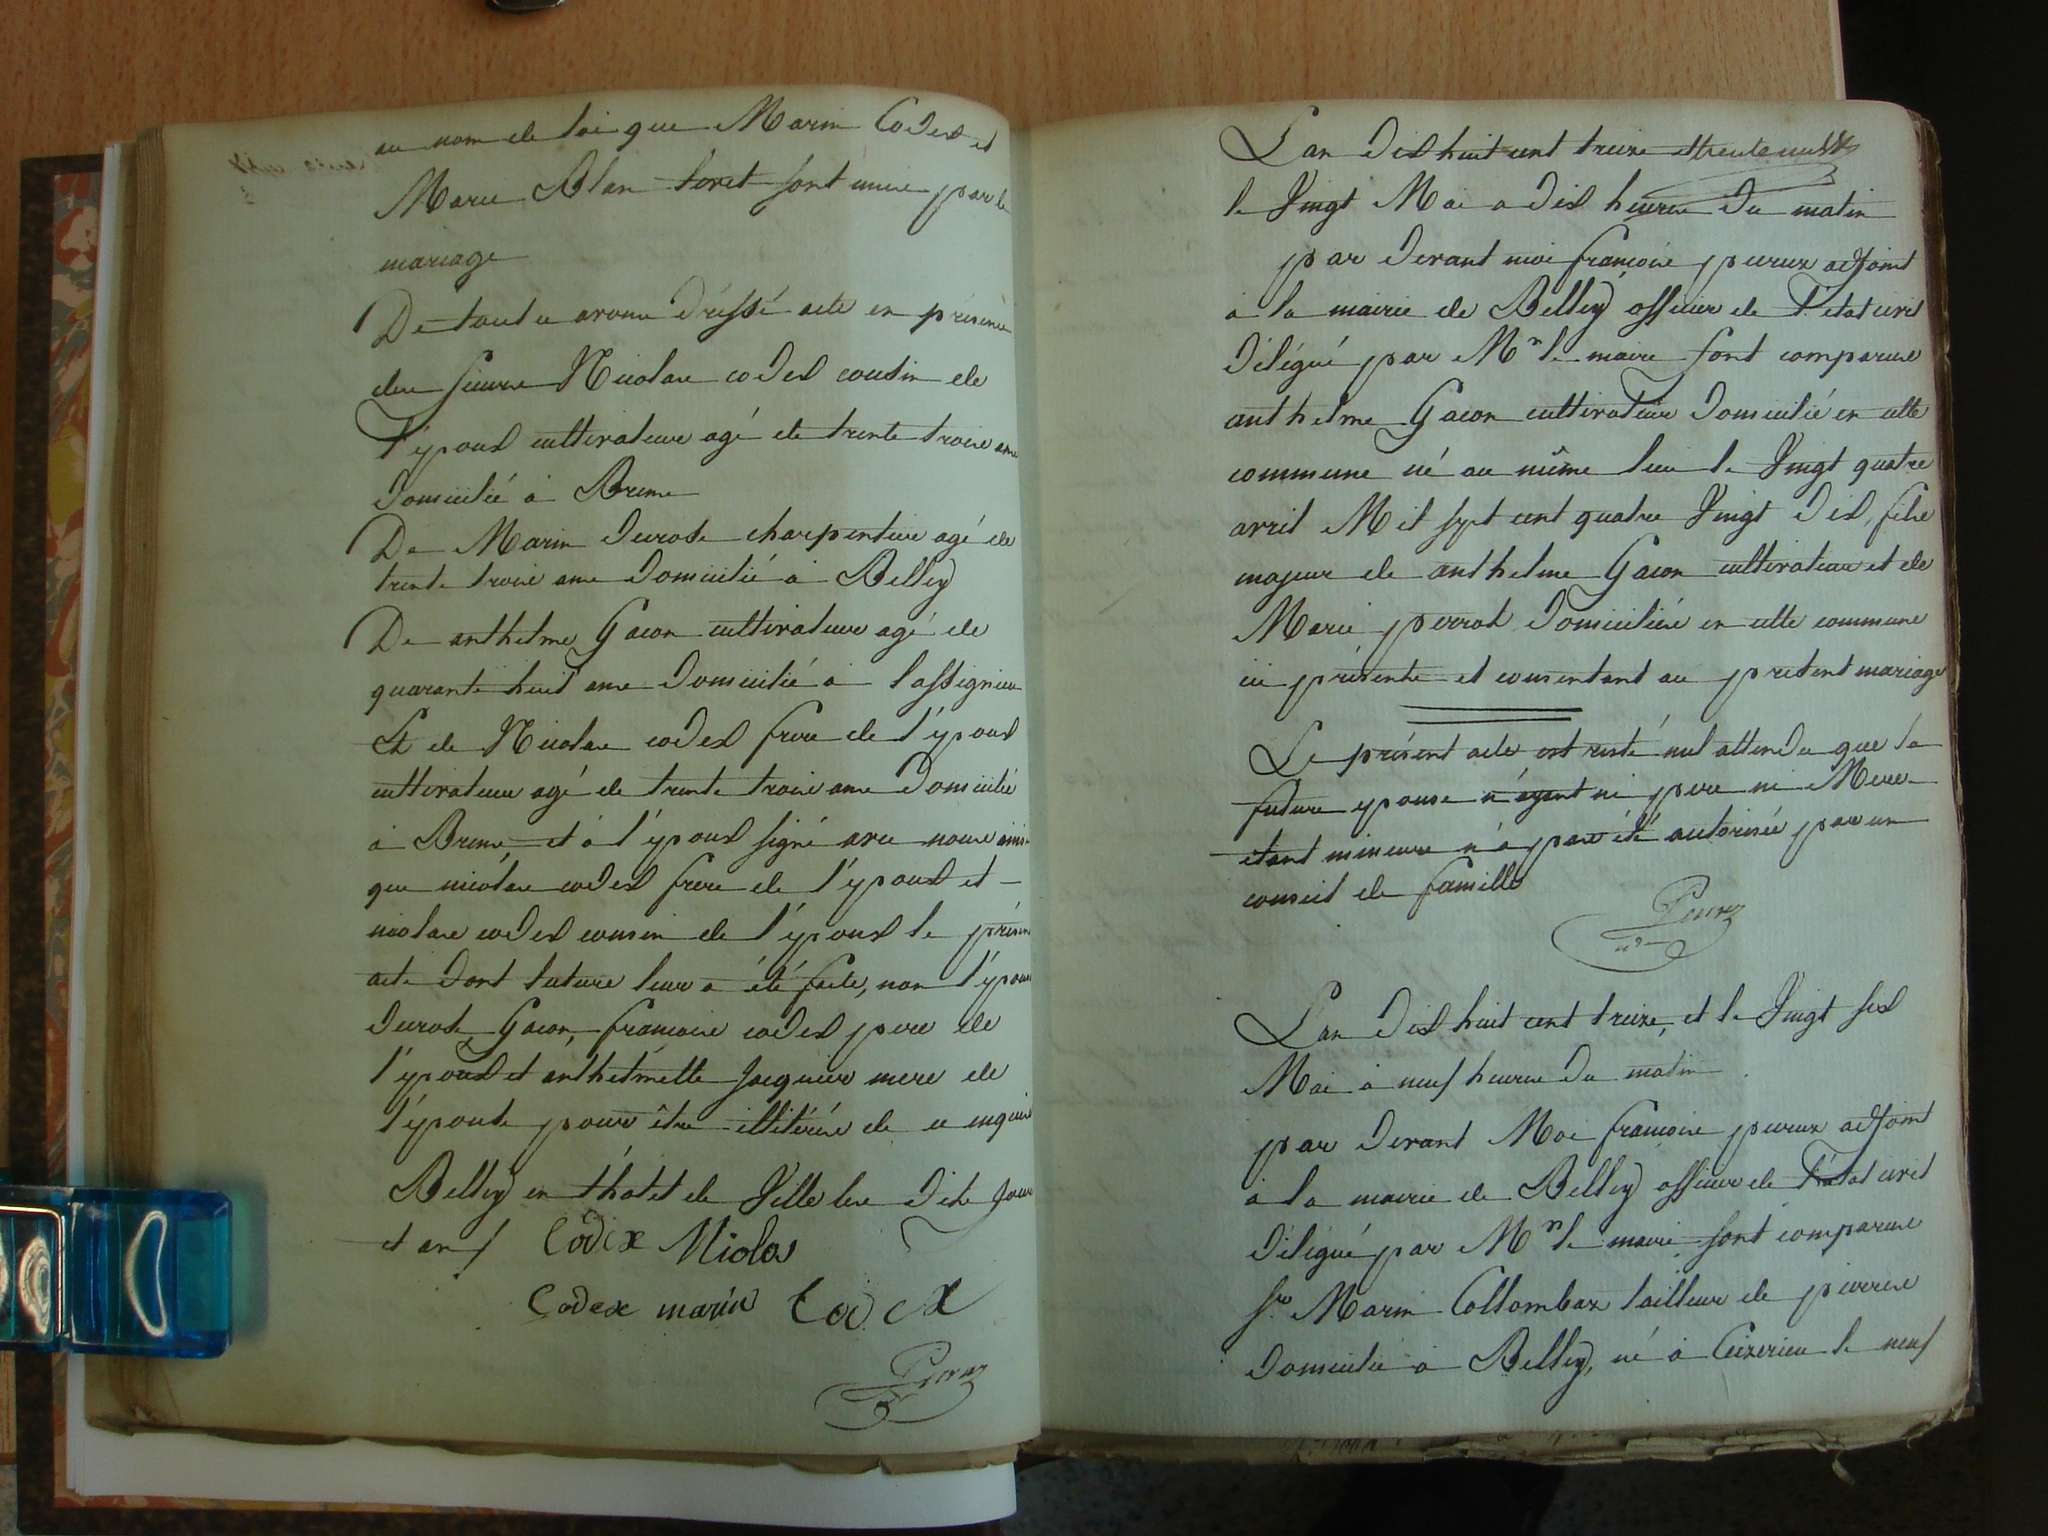 au nom de loi que Marin Codex et
Marie Blan foret sont unis par le
mariage
De tout ce avons dréssé acte en présence
des sieurs Nicolas codex cousin de
l'époux cultivateur agé de trente trois ans
Domicilié à Brens
De Marin Decrose charpentier agé de
trente trois ans Domicilié à Belley
De anthelme Gacon cultivateur agé de
quarante huit ans Domicilié à lassignieu
Et de Nicolas codex frere de l'époux
cultivateur agé de trente trois ans Domicilié
à Brens et à l'époux signé avec nous ainsi
que nicolas codex frere de l'époux et
nicolas codex cousin de l'époux le présent
acte Dont lecture leur a été faite, non l'épouse
Decrose, Gacon, françois codex pere de
l'époux et anthelmette Jacquier mere de
l'épouse pour être illitérés de ce enquis
Belley en l'hotel de Ville les Dits jour
et an /
Codex Niolas
Codex marin Codex
Peeruz
L'an Dix huit cent treize
le Vingt Mai a Dix heures Du matin
par Devant moi françois peeruz adjoint
à la mairie de Belley officier de l'état civil
Délégué par Mr le maire sont comparus
anthelme Gacon cultivateur Domicilié en cette
commune né au même lieu le Vingt quatre
avril Mil sept cent quatre Vingt Dix, fils
majeur de anthelme Gacon cultivateur et de
Marie perrot Domiciliés en cette commune
ici présents et consentant au present mariage
Le présent acte est resté nul attendu que la
future epouse n'ayant ni pere ni Mere
etant mineure n'a pas été autorisée par un
conseil de famille
Peeruz
L'an Dix huit cent treize, et le Vingt six
Mai à neuf heures Du matin
par Devant Moi françois peeruz adjoint
à la mairie de Belley officier de l'état civil
Délégué par Mr le maire sont comparus
Sr Marin Collombaz tailleur de pierres
Domicilié à Belley, né à Ceizerieu le neuf